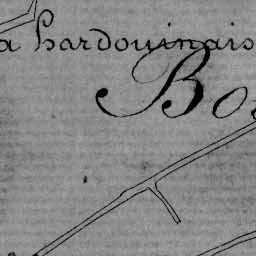 a hardouinais
Bo